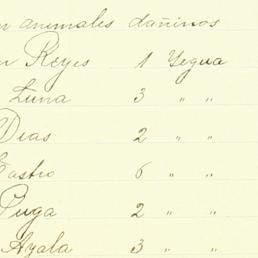 n animales dañinos
n Reyes 1 Yegua
Luna 3 " "
Dias 2 " "
Castro 6 " "
Puga 2 " "
Ayala 3 " "